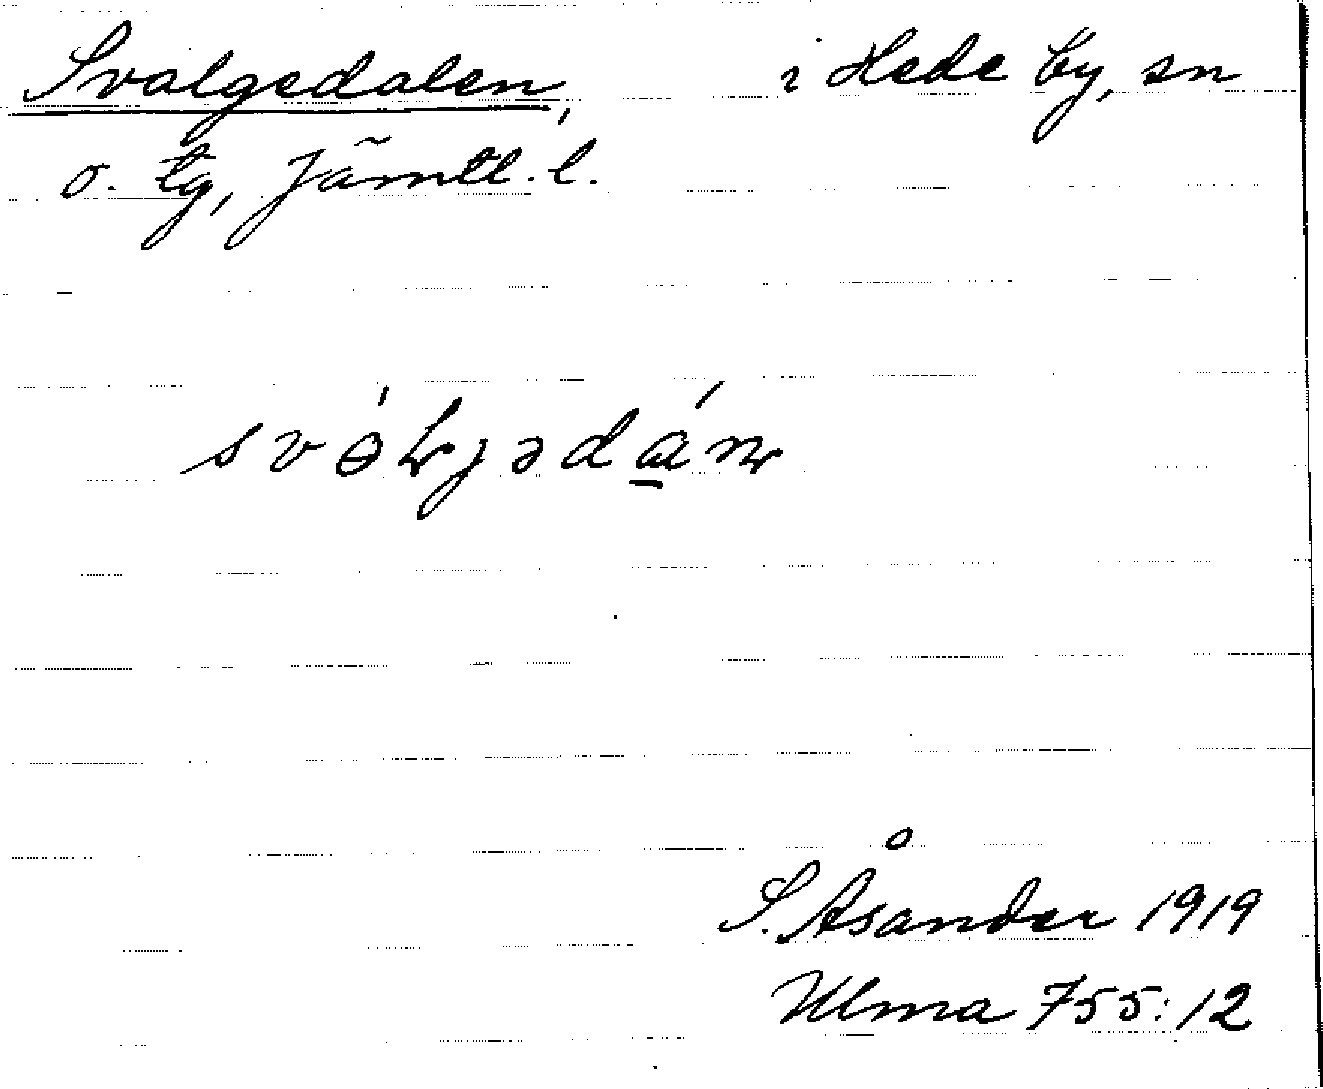 Svalgedalen, i Hede by, sn
o. tg, Jämtl. l.
S. Åsander 1919
Ulma 755:12